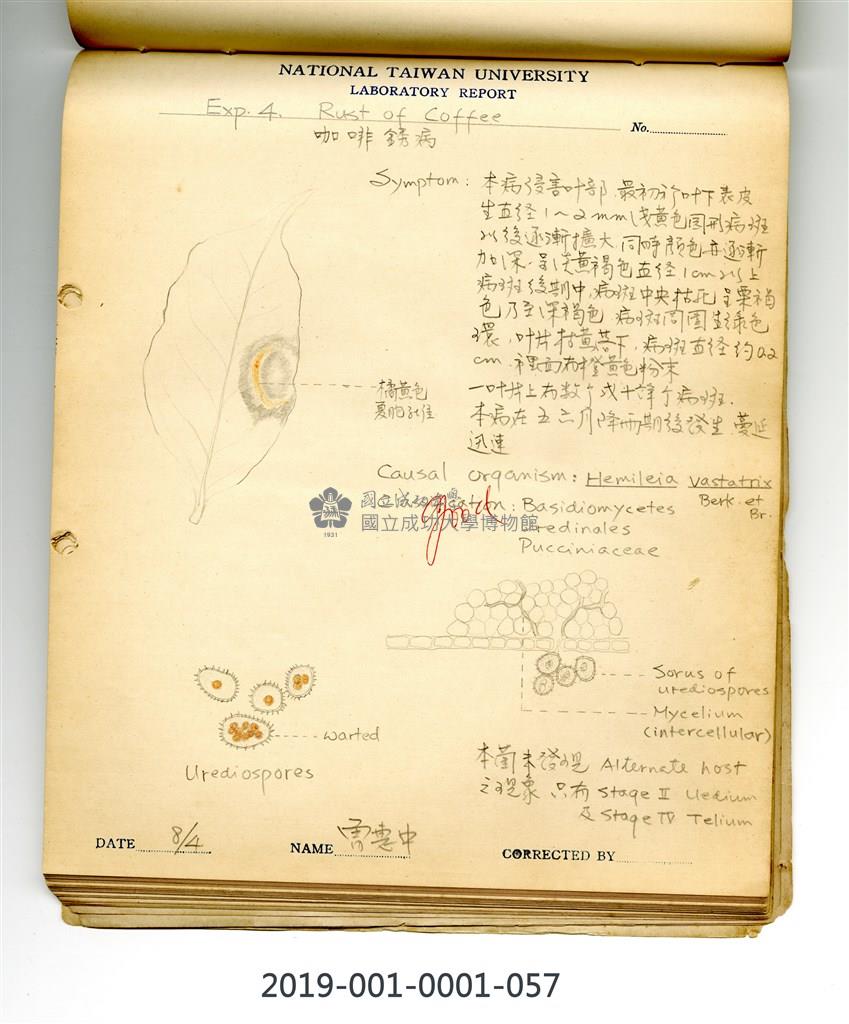 NATIONAL TAIWAN UNIVERSITY
LABORATORY REPORT
Exp. 4. Rust of Coffee
No.
咖啡銹病
Symptom: 本病侵害叶部, 最初於叶下表皮
生直径1~2mm浅黄色円形病斑
以後逐漸擴大, 同時顏色亦逐漸
加深, 呈淡黄褐色直径1cm以上
病斑後期中, 病斑中央枯死呈栗褐
色乃至深褐色, 病斑周圍生綠色
環, 叶片枯黄落下, 病斑直径約0.2
cm, 裡面有橙黄色粉末
一叶片上有数个或十余个病斑.
本病在五六月降雨期後發生, 蔓延
迅速
橘黄色
夏胞子堆
Causal organism: Hemileia vastatrix
Berk. et Br.
Basidiomycetes
Uredinales
Pucciniaceae
Good
國立成功大學
國立成功大學博物館
1931
Sorus of urediospores
Mycelium (intercellular)
warted
Urediospores
本菌未發現 Alternate host
之現象 只有 Stage II Uredium
及 Stage IV Telium
DATE 8/4
NAME
CORRECTED BY
2019-001-0001-057